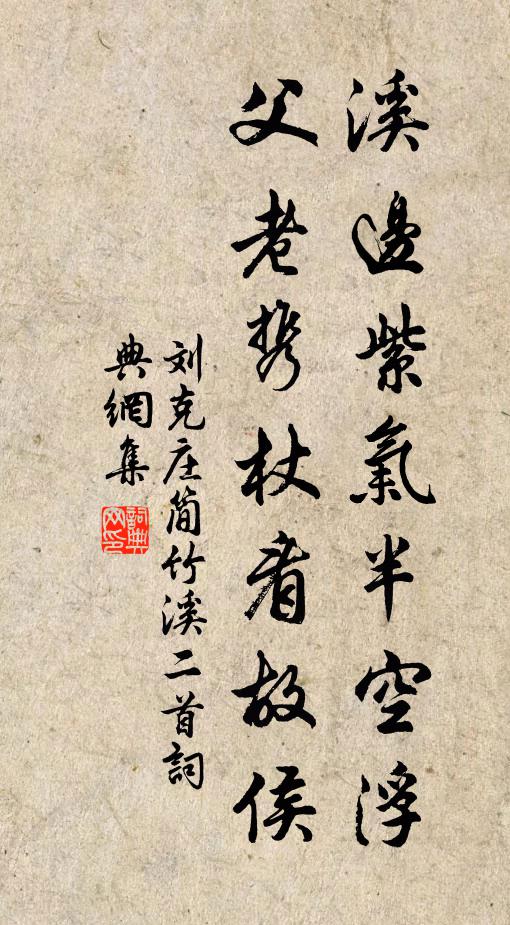 溪邊紫氣半空浮
父老携杖看故侯
刘克庄簡竹溪二首詞
典網集
詞典網印